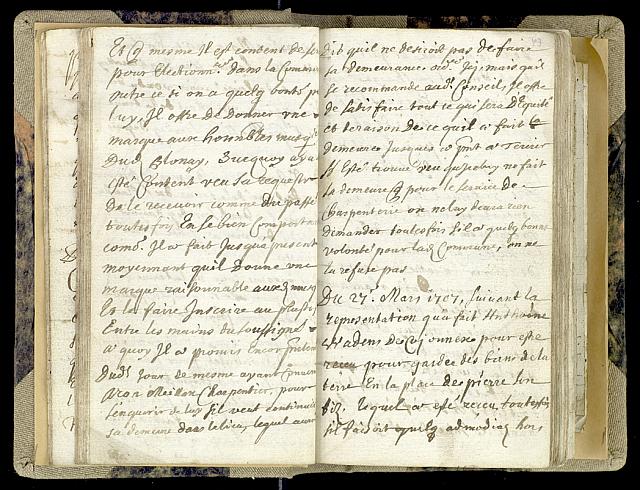 Et q mesme Il est content de se
pour Electionn.re dans la Commun
outre ce si on a quelq bonté p
luy, Il offre de donner une
marque aux honn.bles
Dud Blonay, ayant
esté Content veu sa requeste
De le recevoir comme du passé
touttesfois En se bien comportant
comē Il a fait Jusqua present
moyennant quil donne une
marque raisonnable aux
Et la faire Inscrire au plustost
Entre les mains du soussigné
a quoy Il a promis
Dudt Jour de mesme ayant
Meillon Charpentier, pour
s'enquerir de luy sil veut continuer
sa demeure dans le lieu, lequel auroit
dit quil ne desiroit pas de faire
sa demeurance Icy, mais quil
se recommande audt Conseil, Il offre
de satisfaire tout ce qui sera D'Equité
et de raison de ce quil a fait
demeure Jusques a pnt a
Il Esté trouvé veu quil ne fait
la demeure q pour le service de
Charpenterie on ne luy devra rien
dimander toutes fois sil a quelq bonne
volonté pour lad Commune, on ne
la refuse pas
Du 27.e Mars 1707, suivant la
representation qu'a fait Anthoine
De pour estre
receu pour garde des biens de la
terre En la place de pierre
lequel a esté receu, touttesfois
sil faisoit quelq hors